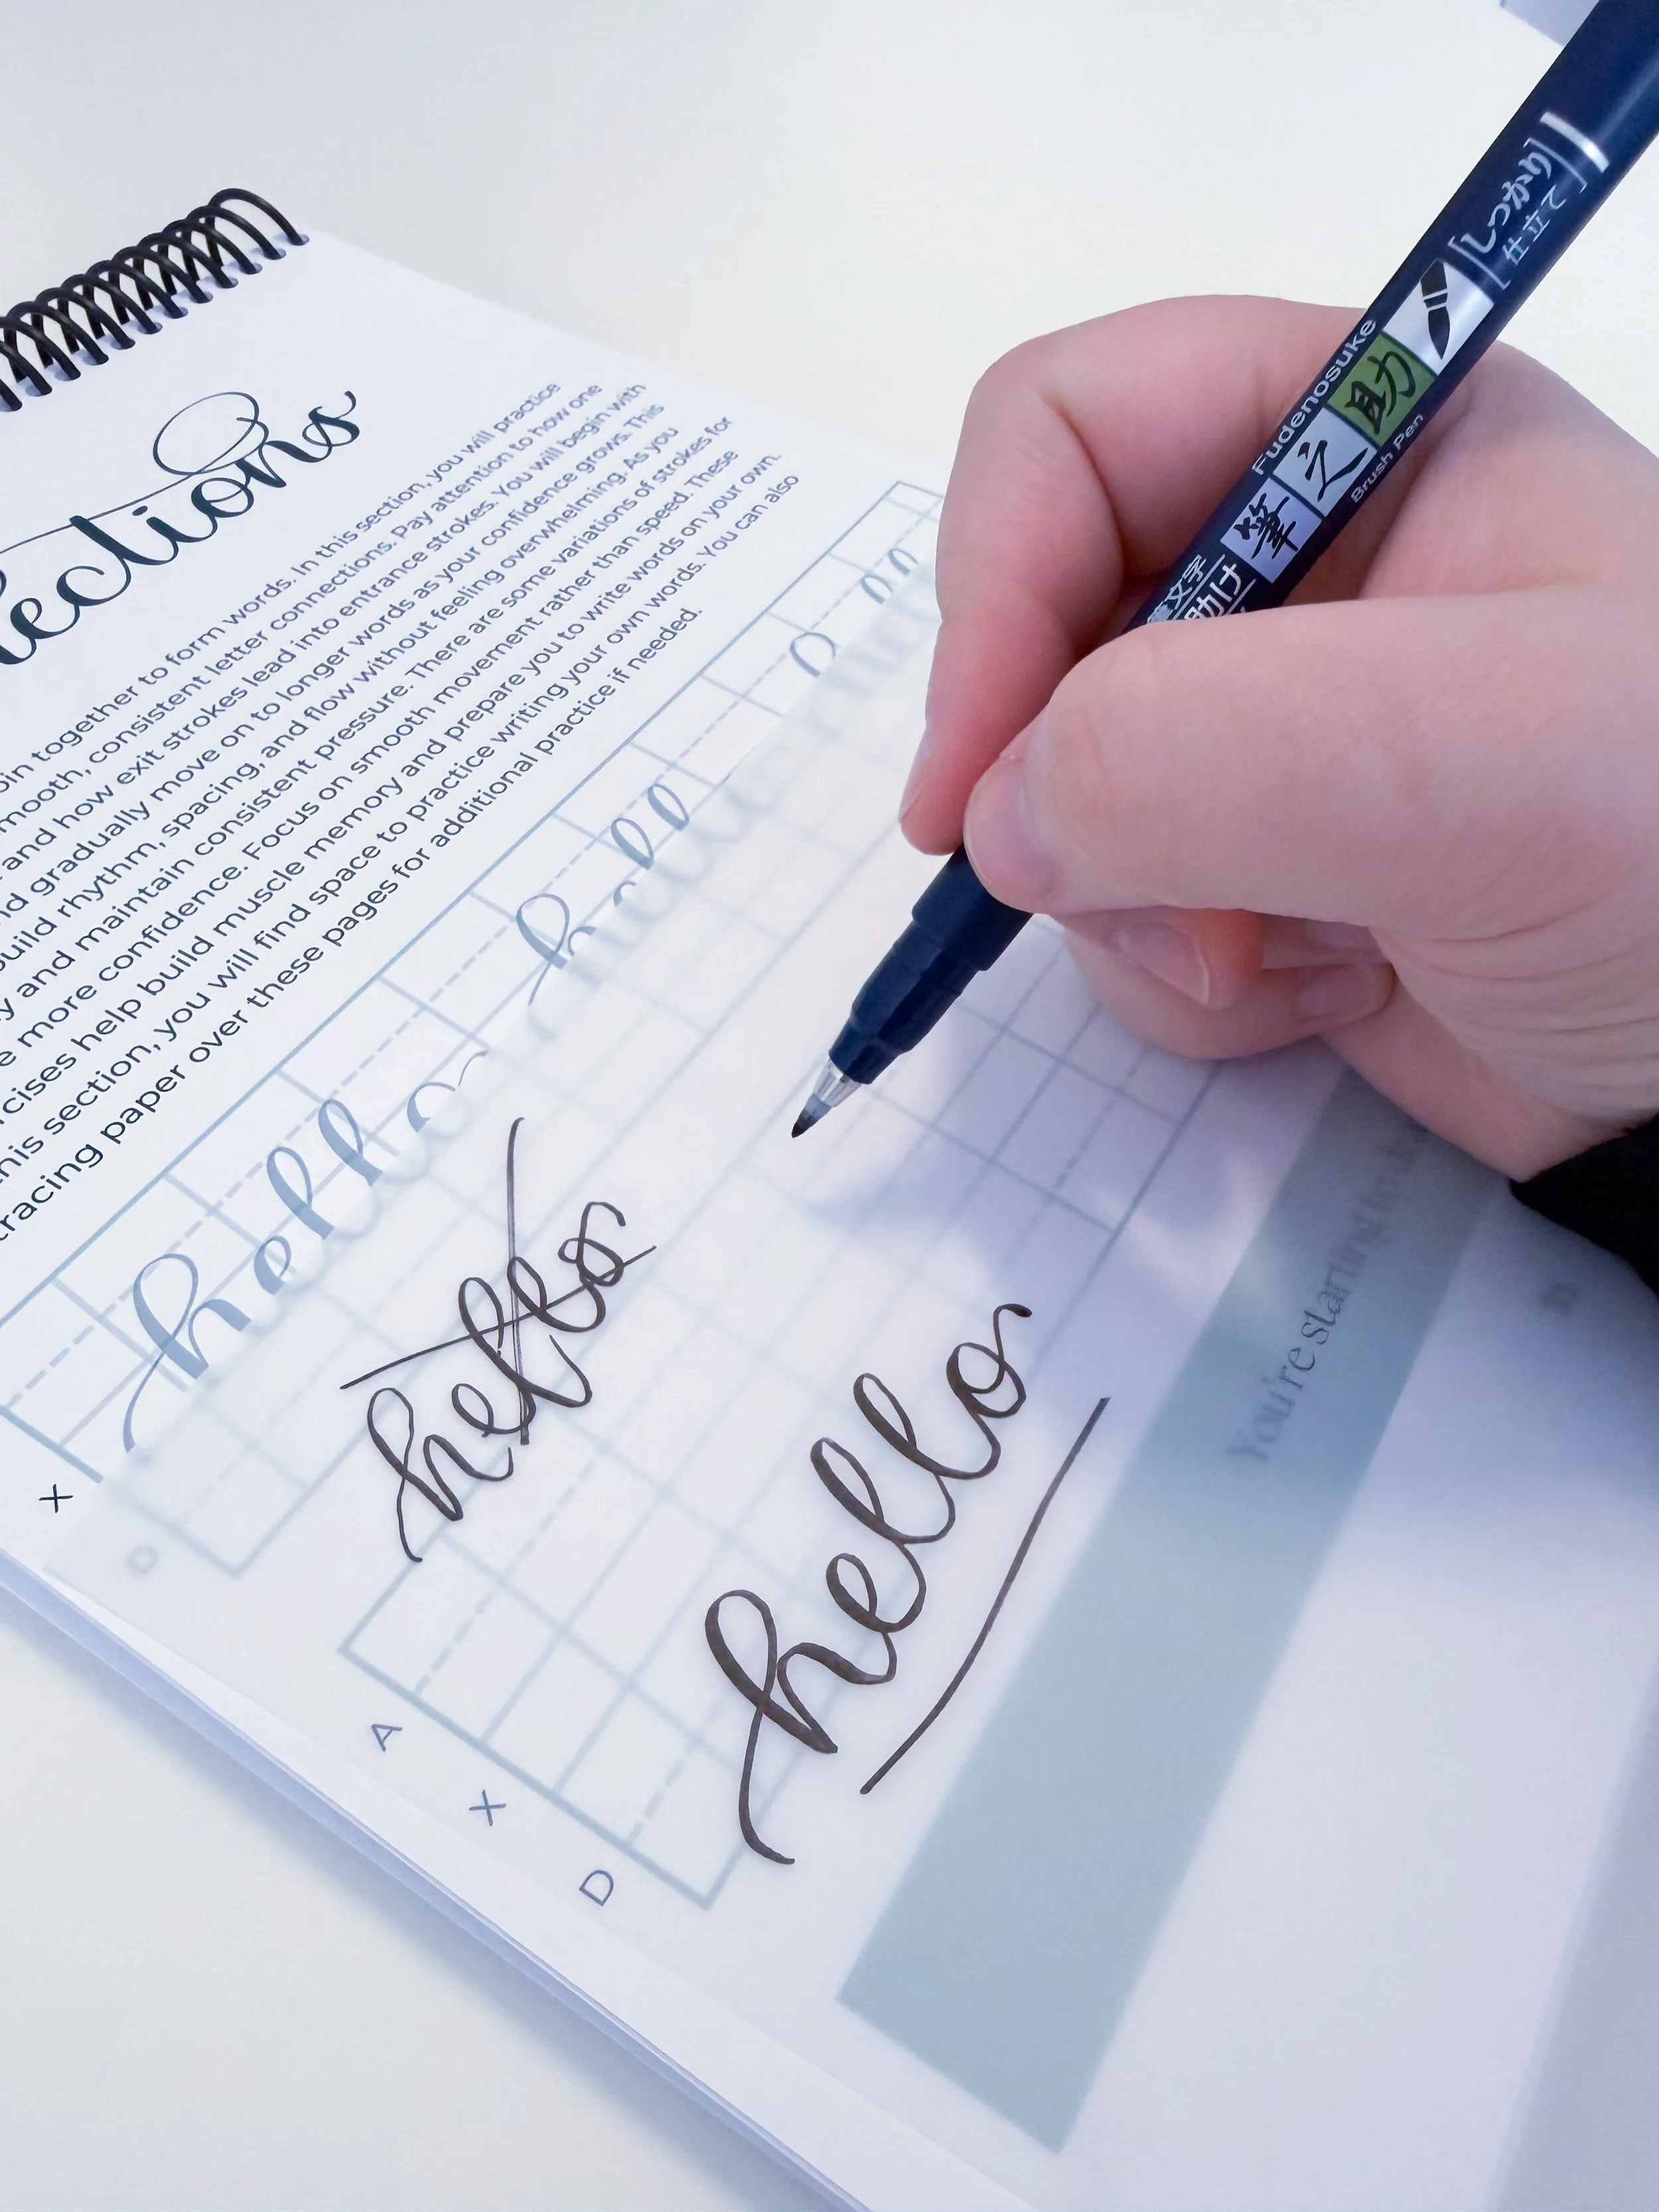 ections
oin together to form words. In this section, you will practice
mooth, consistent letter connections. Pay attention to how one
and how exit strokes lead into entrance strokes. You will begin with
nd gradually move on to longer words as your confidence grows. This
uild rhythm, spacing, and flow without feeling overwhelming. As you
y and maintain consistent pressure. There are some variations of strokes for
e more confidence. Focus on smooth movement rather than speed. These
cises help build muscle memory and prepare you to write words on your own.
his section, you will find space to practice writing your own words. You can also
tracing paper over these pages for additional practice if needed.
hello hello
X
D
hello
A
X
D
hello
You're starting to
しっかり
仕立て
Fudenosuke
筆之助
Brush Pen
筆文字
助け